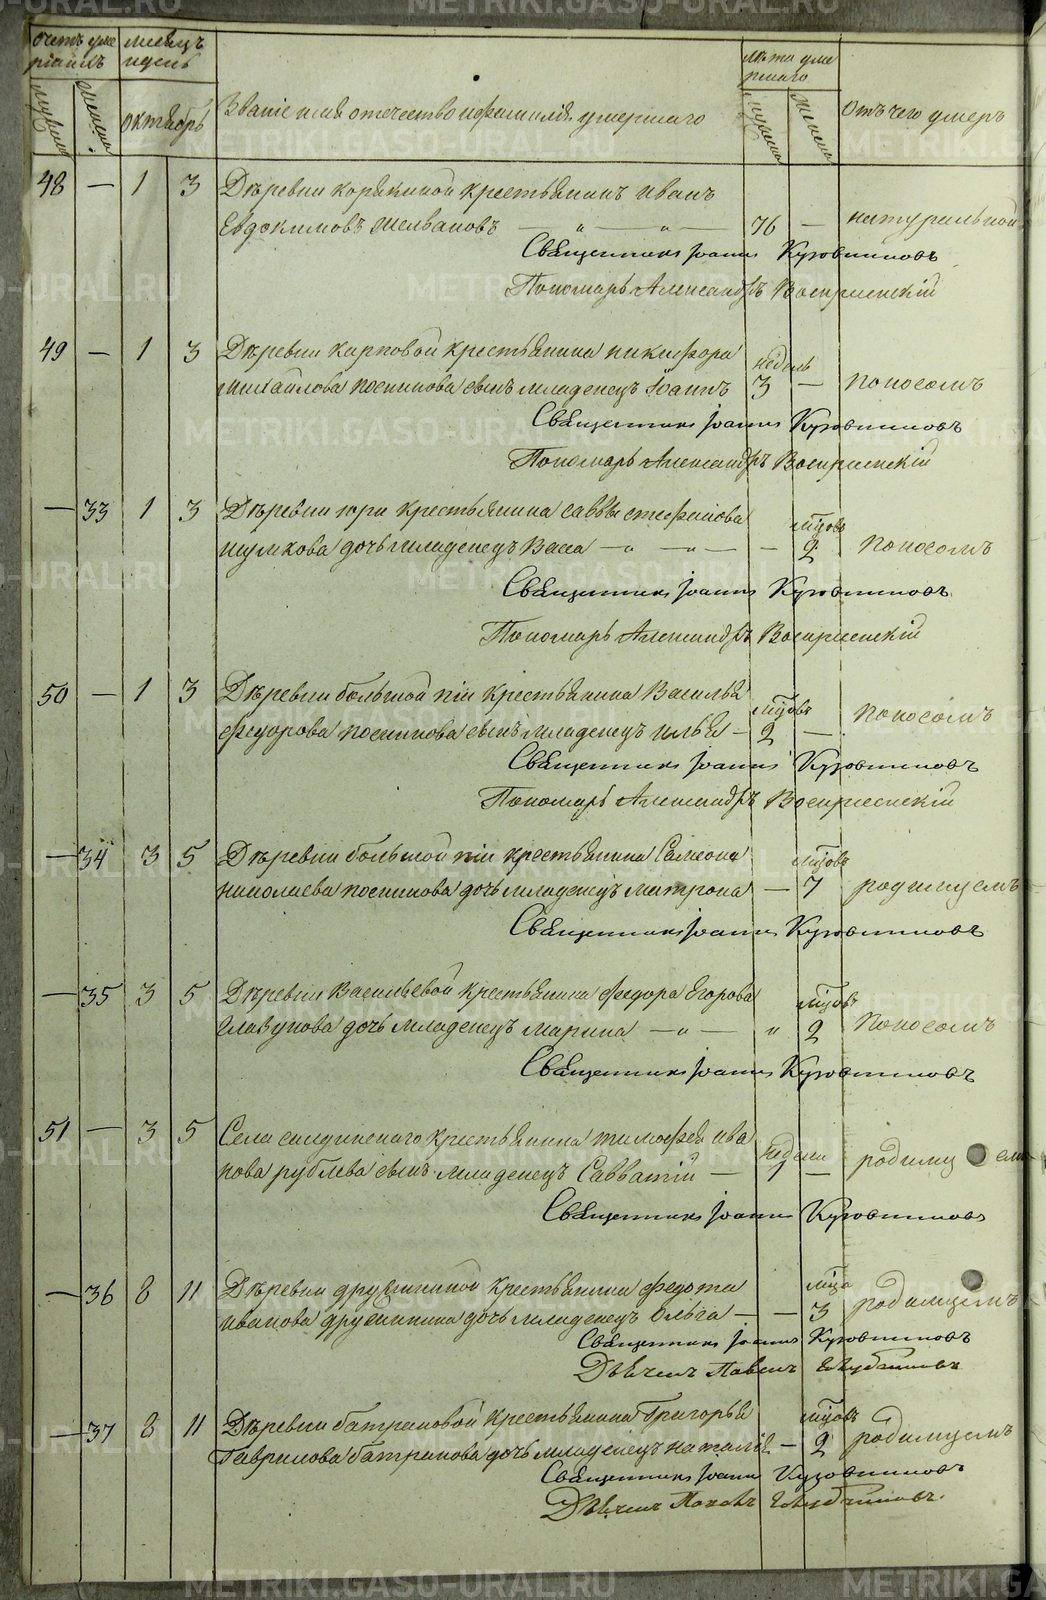 Счетъ уме
ршихъ
мужеска
женска
месяцъ
и день
октябрь
Званіе имя отечество и фамилія умершаго
лѣта уме
ршаго
мужеска
женска
Отъ чего умеръ
48 — 1 3 Деревни корякиной крестьянинъ иванъ
Евдокимовъ 76 — натуральной
Священникъ Іоаннъ Кузовниковъ
Пономарь Александръ Воскресенскій
49 — 1 3 Деревни карповой крестьянина никифора
недель
михайлова посникова сынъ младенецъ Іоаннъ 3 — поносомъ
Священникъ Іоаннъ Кузовниковъ
Пономарь Александръ Воскресенскій
— 33 1 3 Деревни юри крестьянина саввы стефанова
мцовъ
шумкова дочь младенецъ Васса — 2 поносомъ
Священникъ Іоаннъ Кузовниковъ
Пономарь Александръ Воскресенскій
50 — 1 3 Деревни большой тіи крестьянина Василья
мцовъ
федорова посникова сынъ младенецъ илья — 2 — поносомъ
Священникъ Іоаннъ Кузовниковъ
Пономарь Александръ Воскресенскій
— 34 3 5 Деревни большой тіи крестьянина Самсона
мцовъ
николаева посникова дочь младенецъ матрона — 7 родимцемъ
Священникъ Іоаннъ Кузовниковъ
— 35 3 5 Деревни Васильевой крестьянина федора Егорова
мцовъ
главунова дочь младенецъ марина — 2 поносомъ
Священникъ Іоаннъ Кузовниковъ
51 — 3 5 Села крестьянина тимофея ива
недели
нова рублева сынъ младенецъ Савватій — 1 — родимцемъ
Священникъ Іоаннъ Кузовниковъ
— 36 8 11 Деревни дружининой крестьянина федота
мца
иванова дружинина дочь младенецъ Ольга — — 3 родимцемъ
Священникъ Іоаннъ Кузовниковъ
Дьячекъ Павелъ
— 37 8 11 Деревни батраковой крестьянина Григорья
мцовъ
Гаврилова батракова дочь младенецъ наталія — 2 родимцемъ
Священникъ Іоаннъ Кузовниковъ
Дьячекъ
METRIKI.GASO-URAL.RU